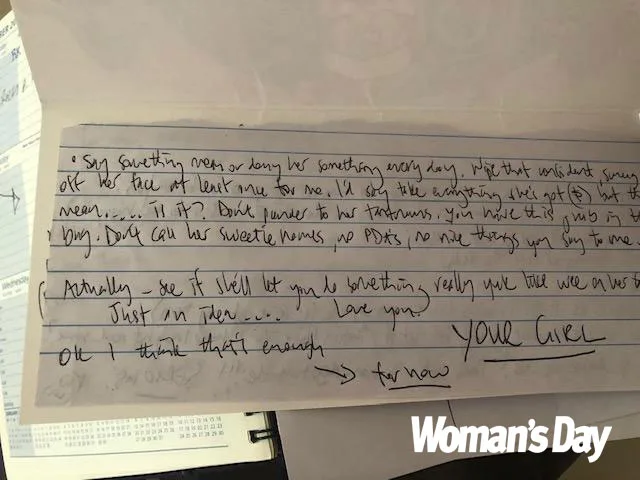 • Say something mean or deny her something every day. Wipe that confident
off her face at least once for me. I'd say take everything she's got but
mean..... is it? Don't pander to her tantrums. You have this in the
bag. Don't call her sweetie names, no PDA's, no nice things you say to me.
Actually - see if she'll let you do something really yuk like wee on her
Just an idea.... Love you.
YOUR GIRL
OK I think that's enough
→ for now
Wednesday
Woman's Day